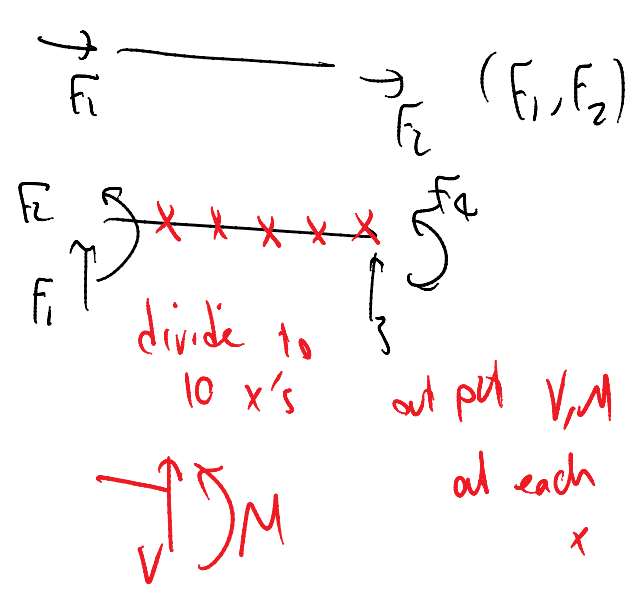 F1
F2
(F1, F2)
F2
F4
F1
3
divide to
10 x's
out put V, M
at each
x
V
M